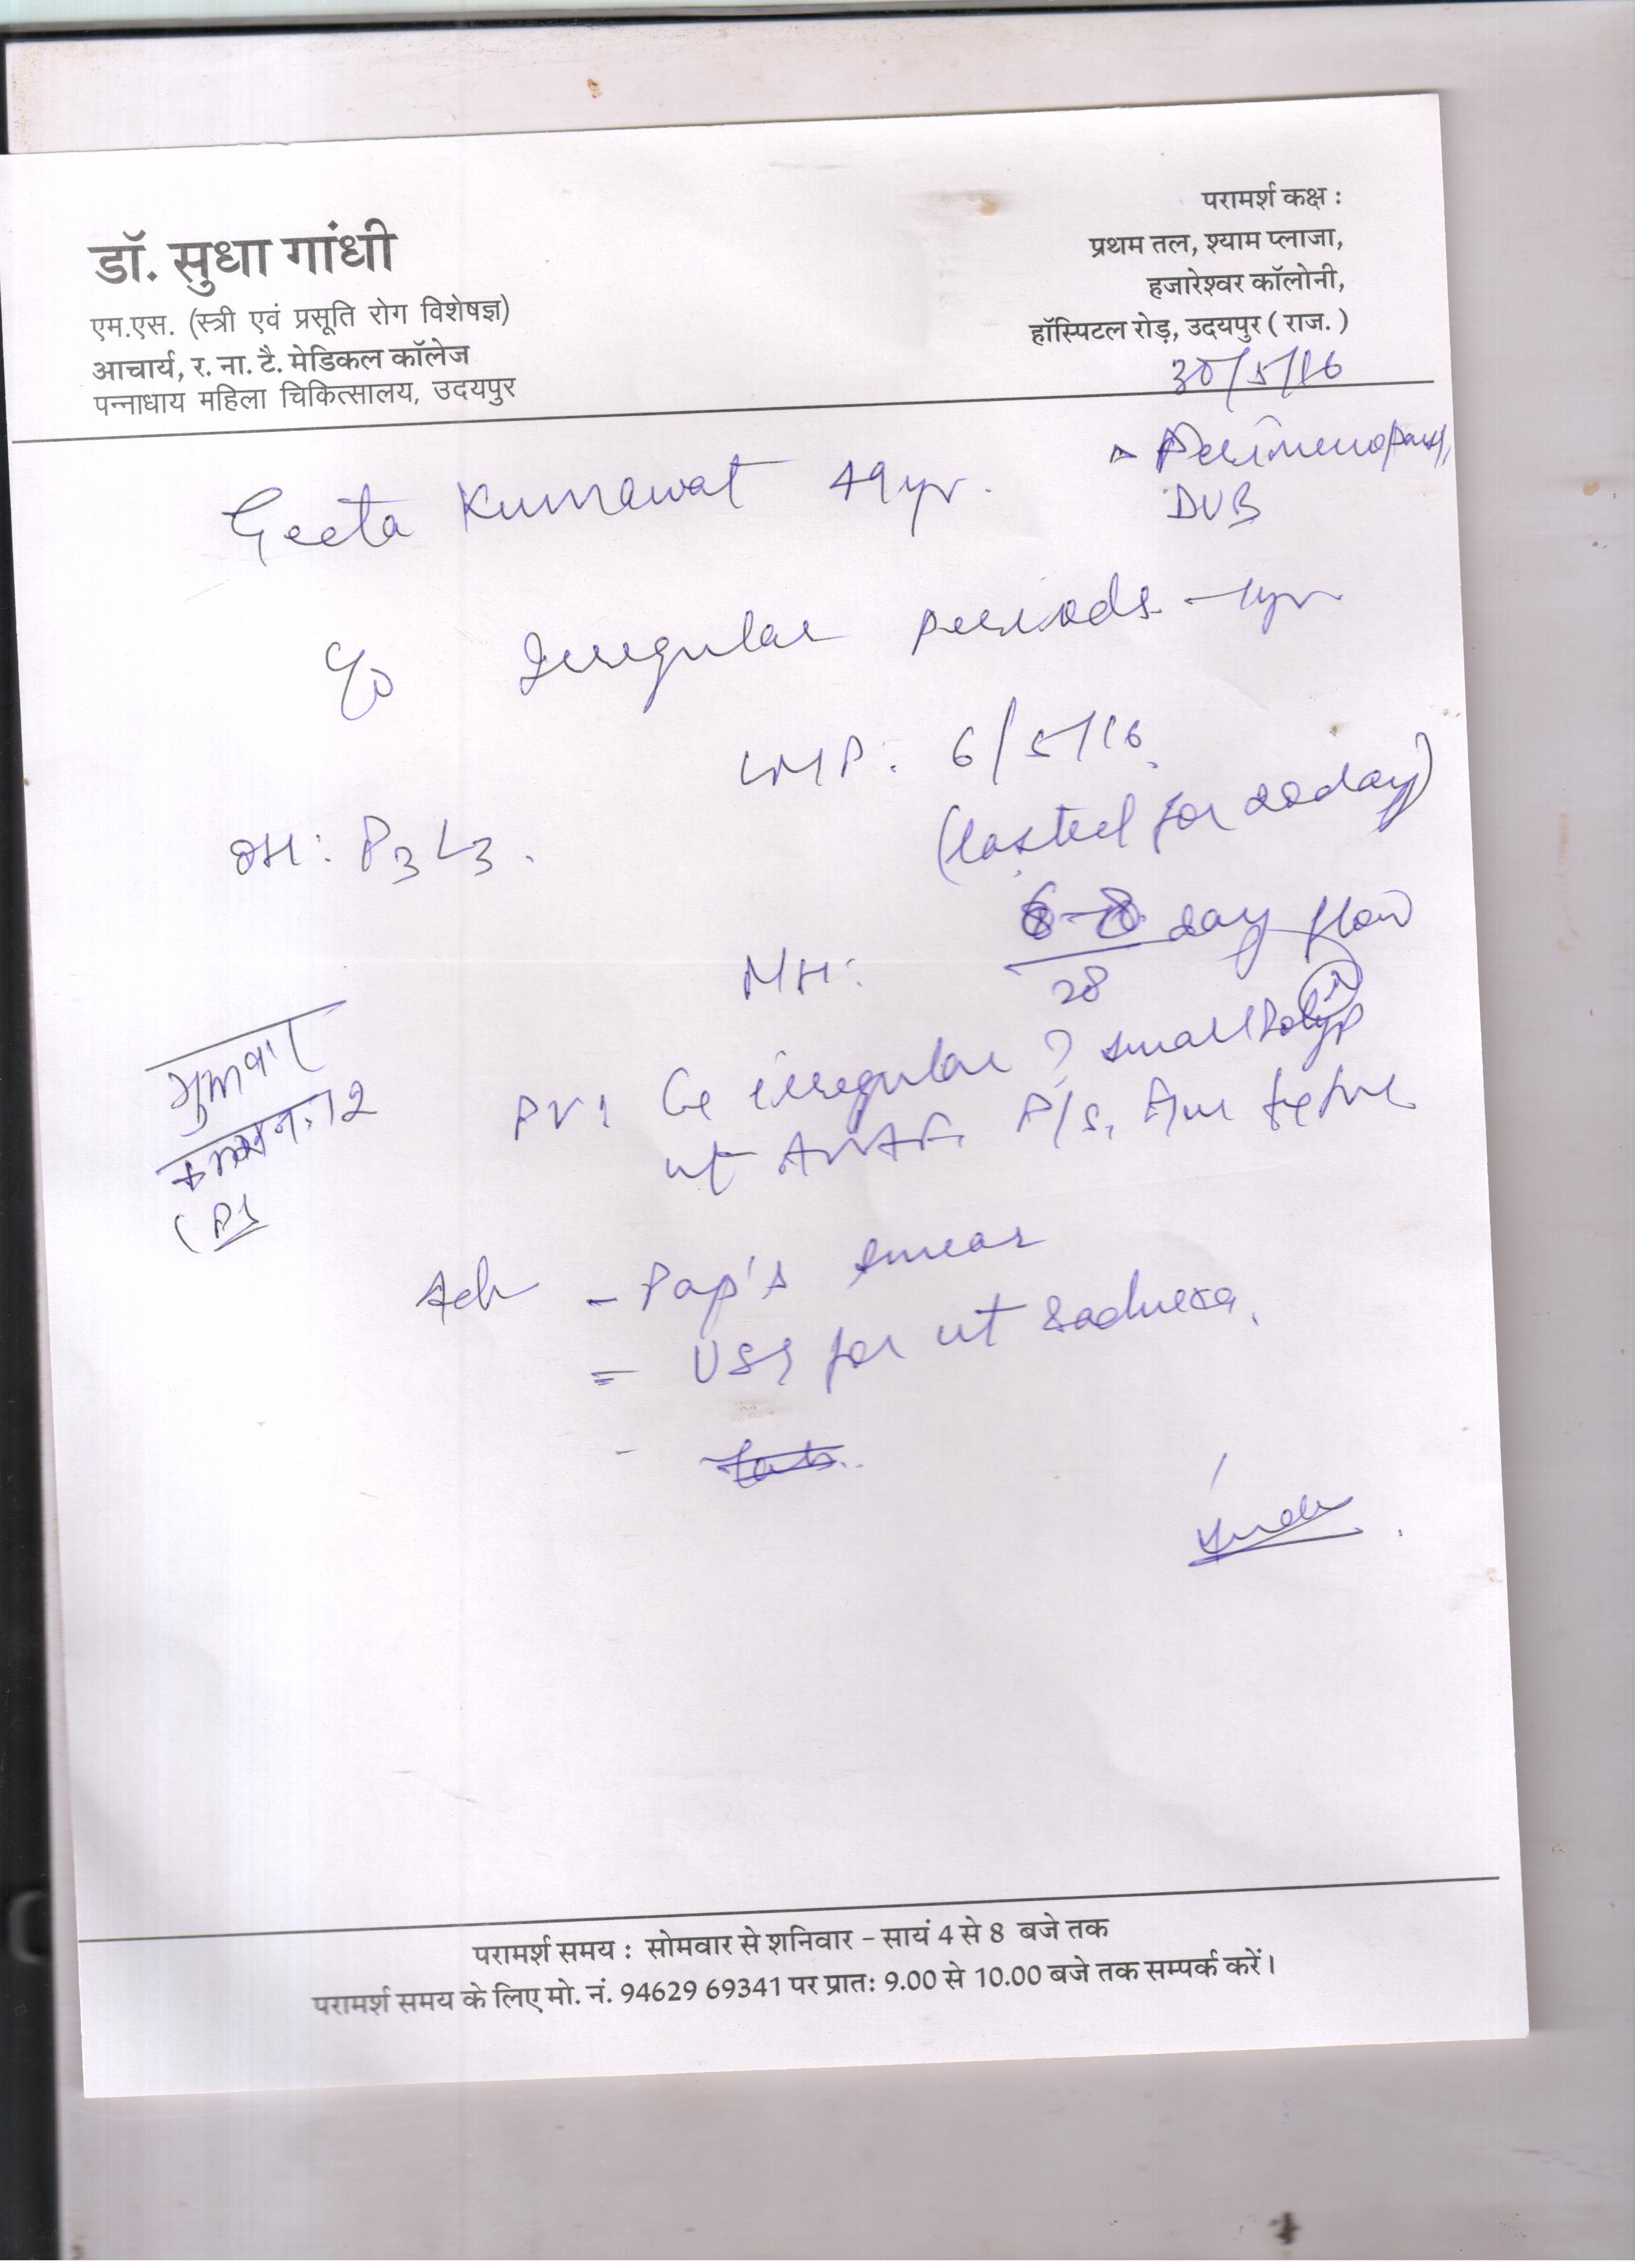 डॉ. सुधा गांधी
एम.एस. (स्त्री एवं प्रसूति रोग विशेषज्ञ)
आचार्य, र. ना. टै. मेडिकल कॉलेज
पन्नाधाय महिला चिकित्सालय, उदयपुर
परामर्श कक्ष :
प्रथम तल, श्याम प्लाजा,
हजारेश्वर कॉलोनी,
हॉस्पिटल रोड़, उदयपुर ( राज. )
30/5/16
Geeta Kumawat 49yr.
DUB
c/o Irregular periods - 1yr
LMP: 6/5/16
(lasted for 20day)
OH: P3L3.
MH: 6-8 day flow
28
PV: Cx irregular ? small Polyp
ut AVAF. P/S.
Adv - Pap's smear
= USG for ut & adnexa.
परामर्श समय : सोमवार से शनिवार - सायं 4 से 8 बजे तक
परामर्श समय के लिए मो. नं. 94629 69341 पर प्रातः 9.00 से 10.00 बजे तक सम्पर्क करें।